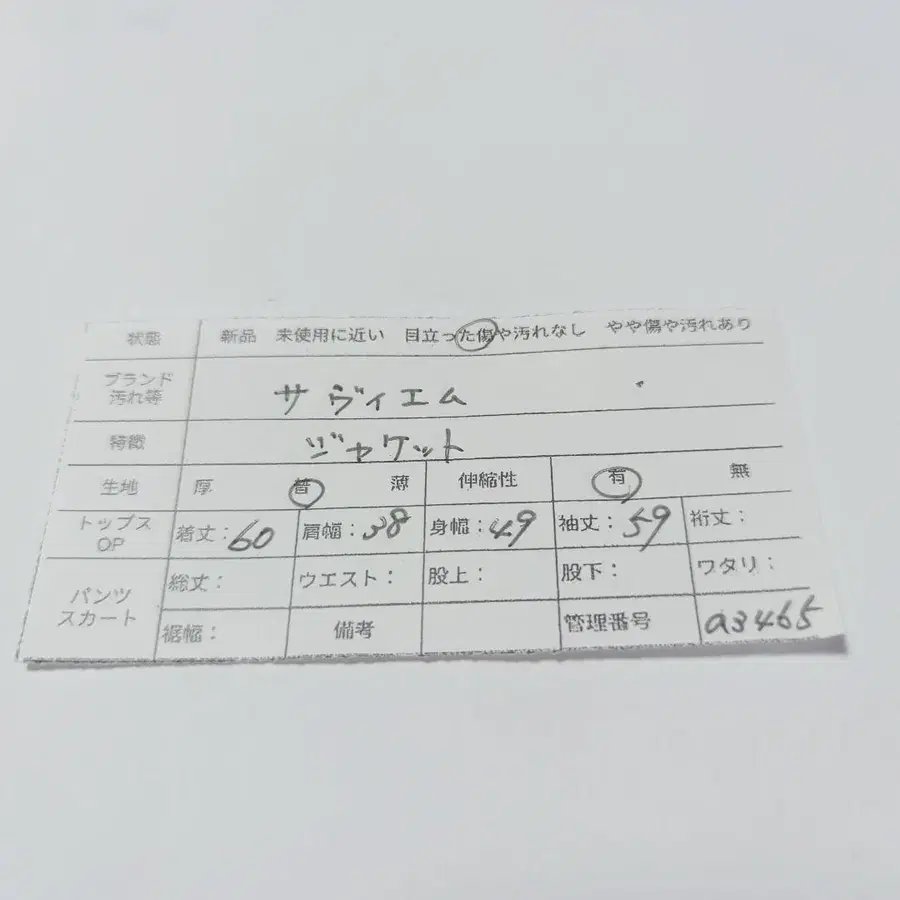 状態 新品 未使用に近い 目立った傷や汚れなし やや傷や汚れあり
ブランド
汚れ等 サヴィエム
特徴 ジャケット
生地 厚 普 薄 伸縮性 有 無
トップス
OP 着丈:60 肩幅:38 身幅:49 袖丈:59 裄丈:
パンツ
スカート 総丈: ウエスト: 股上: 股下: ワタリ:
裾幅: 備考 管理番号 a3465